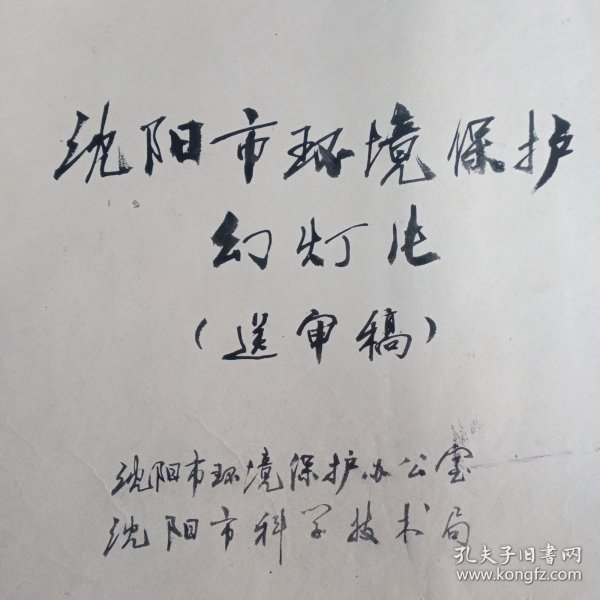 沈阳市环境保护
幻灯片
(送审稿)
沈阳市环境保护办公室
沈阳市科学技术局
孔夫子旧书网
www.kongfz.com